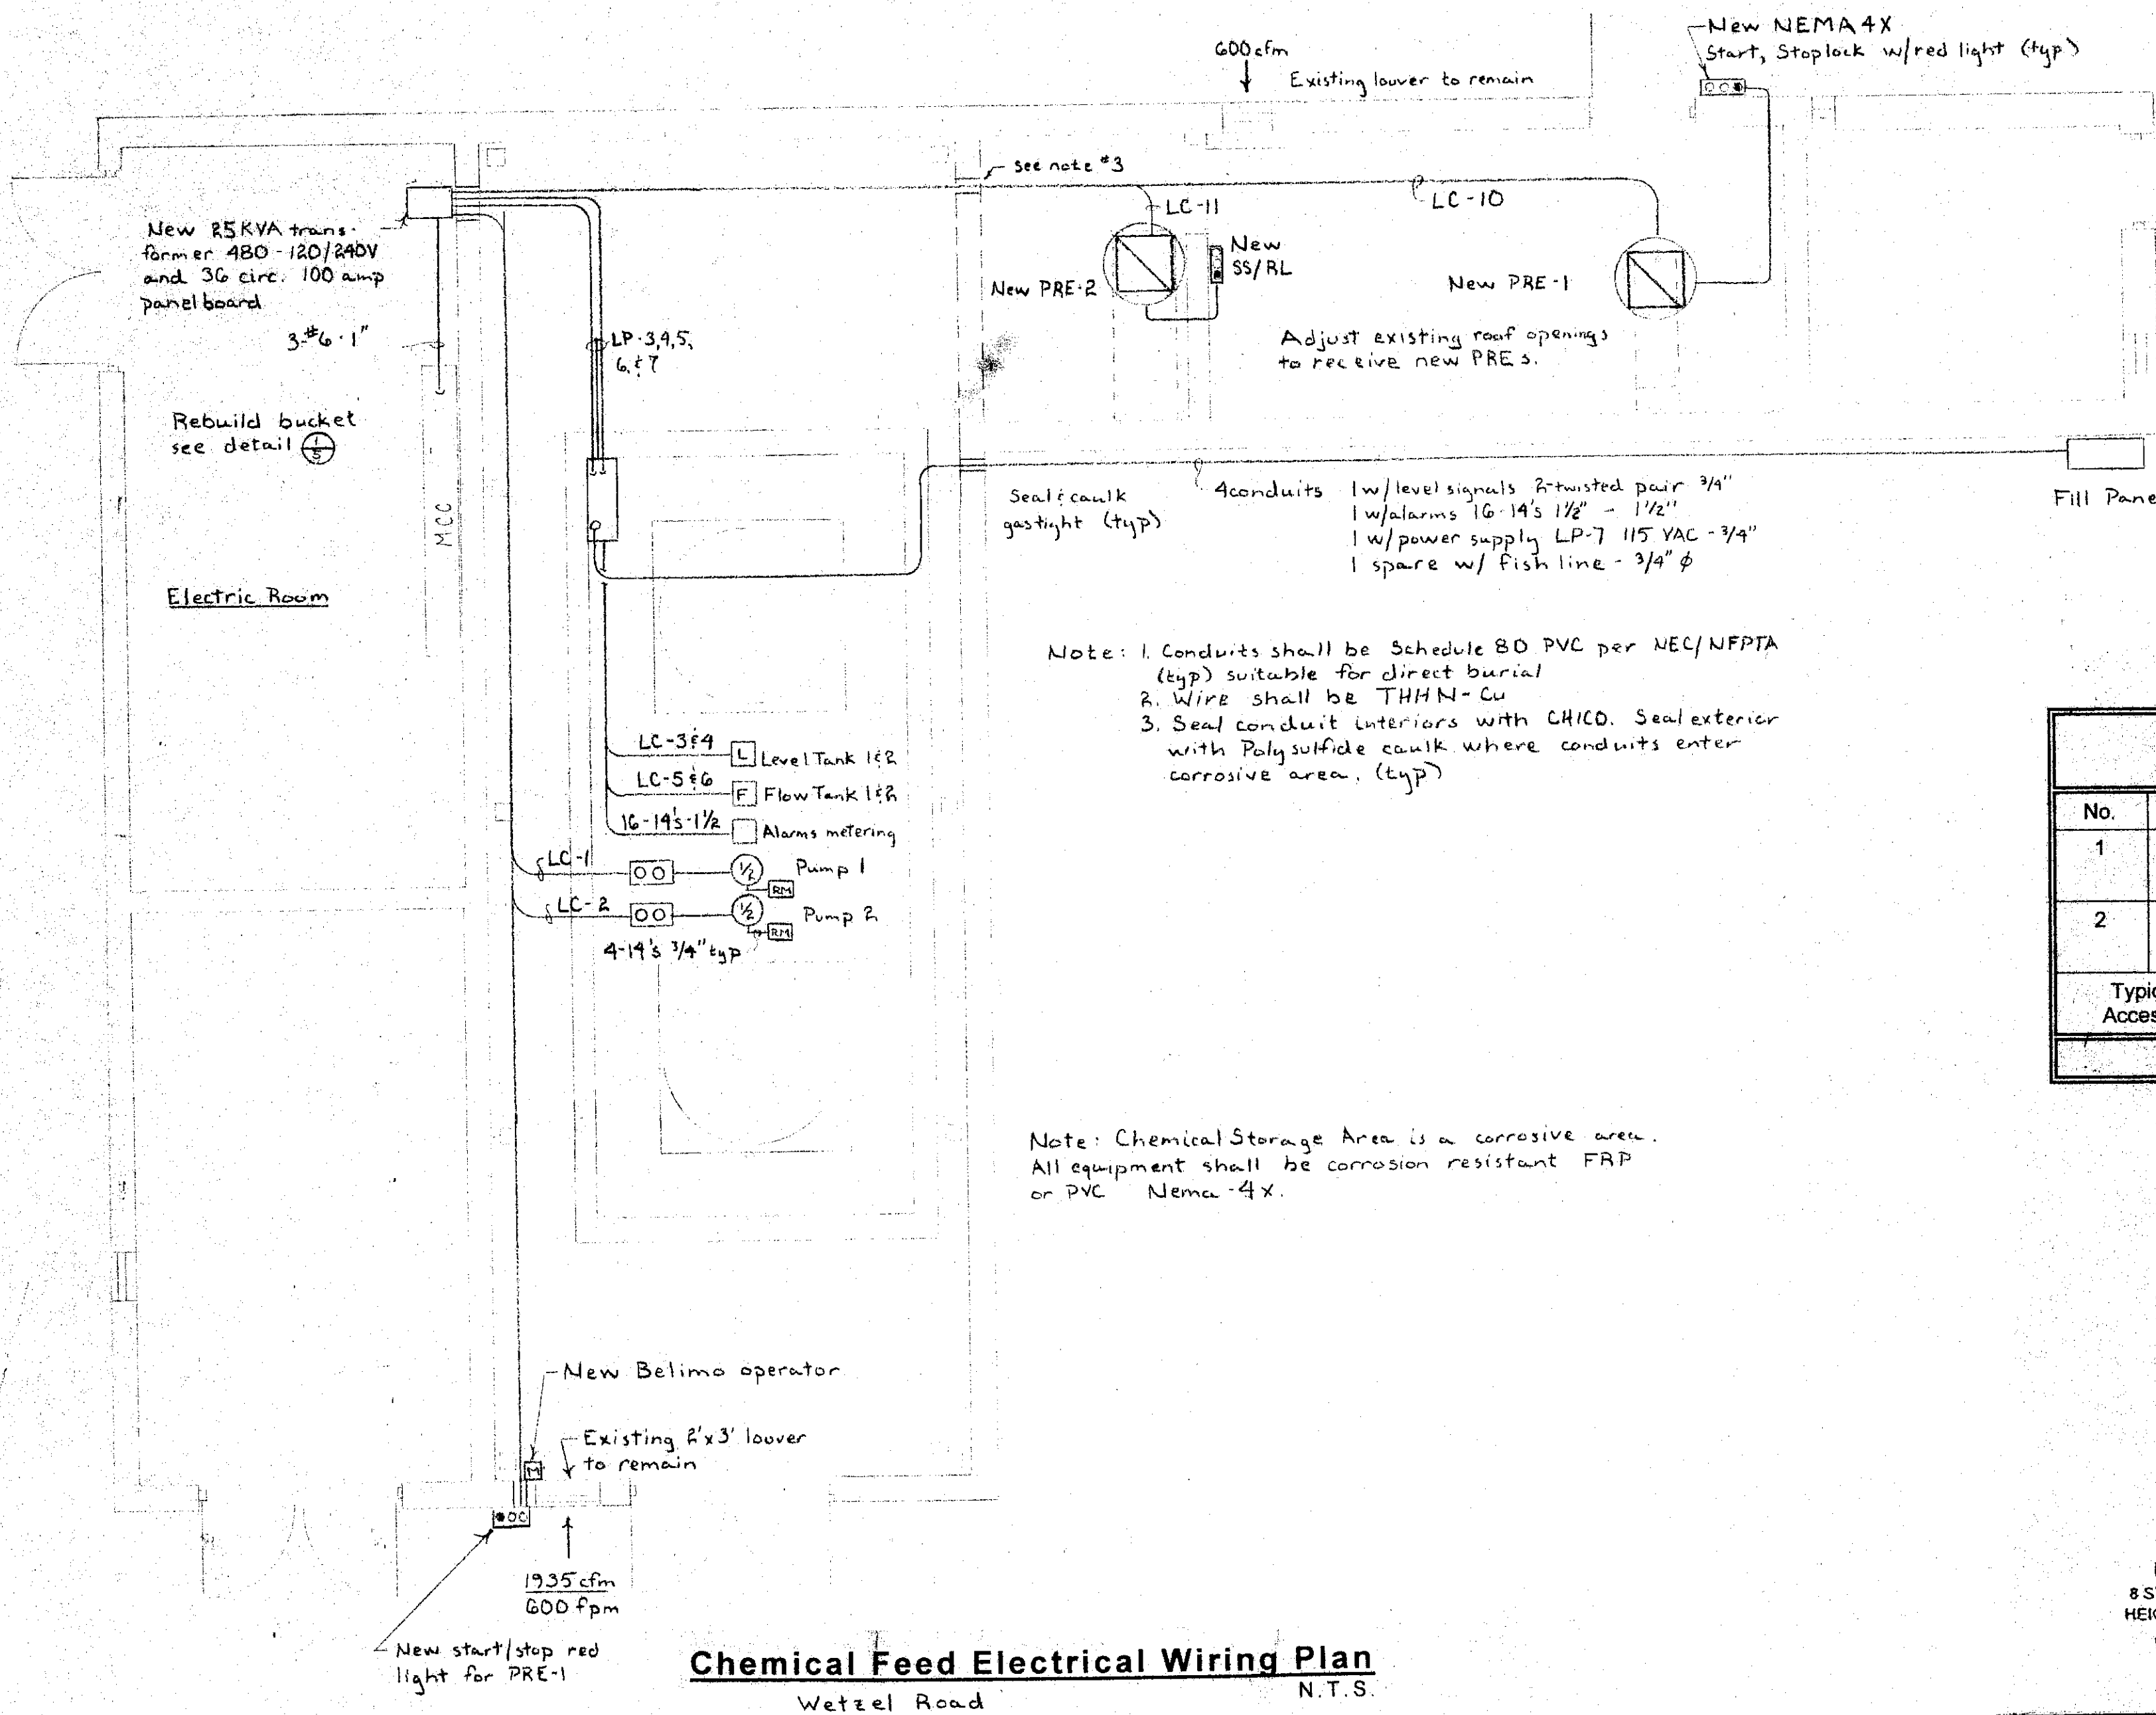 New NEMA 4X
Start, Stoplock w/red light (typ)
600 cfm
Existing louver to remain
see note #3
LC-11
LC-10
New 25 KVA trans-
former 480-120/240V
and 36 circ. 100 amp
panelboard
New
SS/RL
New PRE-2
New PRE-1
3-#6-1"
LP-3,4,5,
6,&7
Adjust existing roof openings
to receive new PREs.
Rebuild bucket
see detail 1/5
MCC
Seal & caulk
gastight (typ)
4conduits
1 w/level signals 2-twisted pair 3/4"
1 w/alarms 16-14's 1½" - 1½"
1 w/power supply LP-7 115 VAC - 3/4"
1 spare w/ fish line - 3/4" ϕ
Fill Pane
Electric Room
Note: 1. Conduits shall be Schedule 80 PVC per NEC/NFPTA
(typ) suitable for direct burial
2. Wire shall be THHN-Cu
3. Seal conduit interiors with CHICO. Seal exterior
with Polysulfide caulk where conduits enter
corrosive area. (typ)
LC-3&4
L Level Tank 1&2
LC-5&6
F Flow Tank 1&2
16-14's-1½
Alarms metering
LC-1
½
Pump 1
RM
LC-2
½
Pump 2
RM
4-14's 3/4" typ
No.
1
2
Typic
Acces
Note: Chemical Storage Area is a corrosive area.
All equipment shall be corrosion resistant FRP
or PVC Nema-4x.
New Belimo operator
Existing 2'x3' louver
to remain
M
1935 cfm
600 fpm
New start/stop red
light for PRE-1
8 S
HEI
Chemical Feed Electrical Wiring Plan
N.T.S.
Wetzel Road